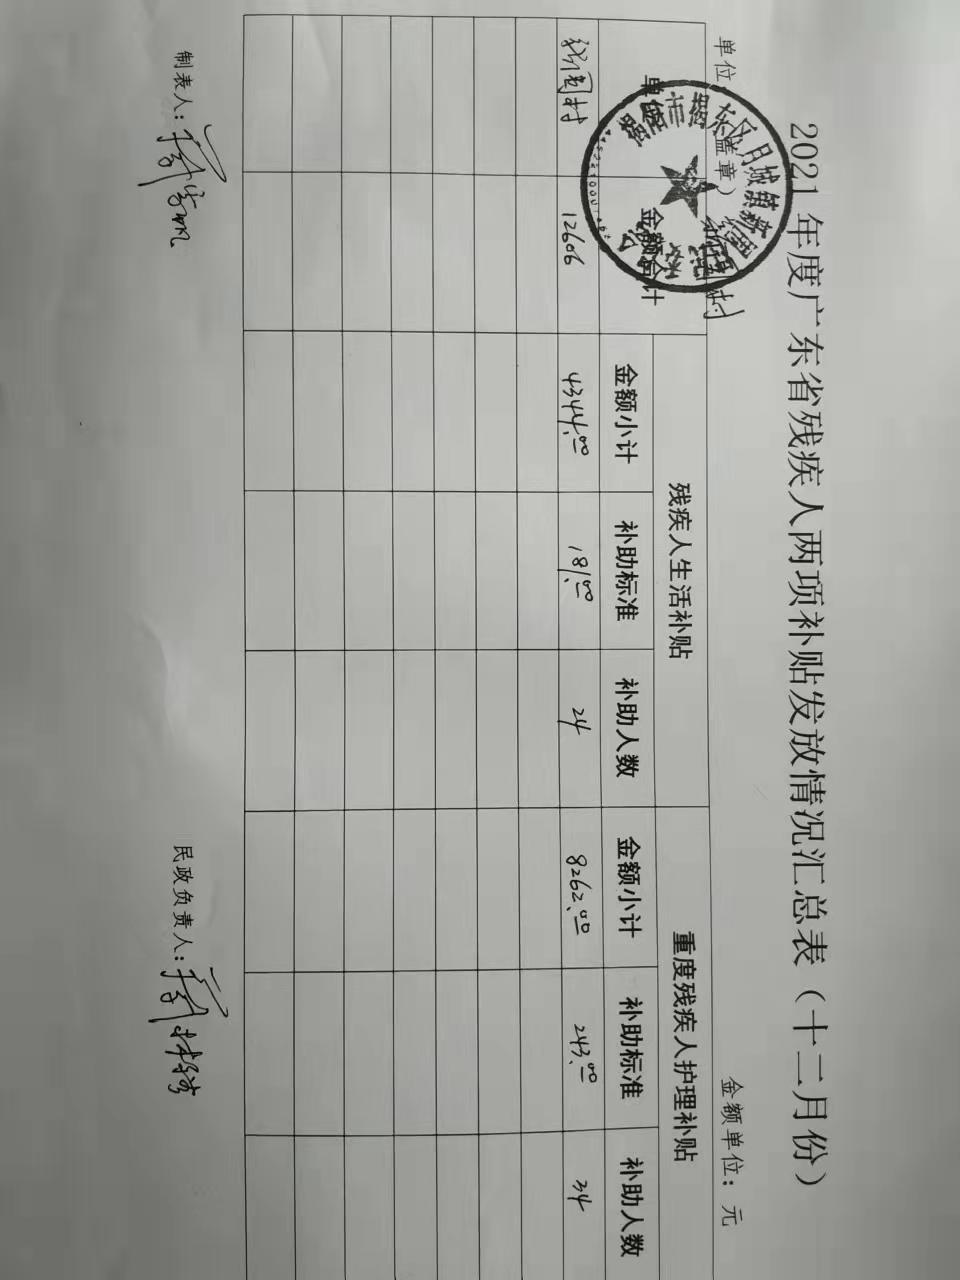 2021年度广东省残疾人两项补贴发放情况汇总表（十二月份）
单位（盖章） 金额单位：元
单位 金额合计 残疾人生活补贴 重度残疾人护理补贴
金额小计 补助标准 补助人数 金额小计 补助标准 补助人数
村 12606 4344.00 181.00 24 8262.00 243.00 34
制表人： 民政负责人：